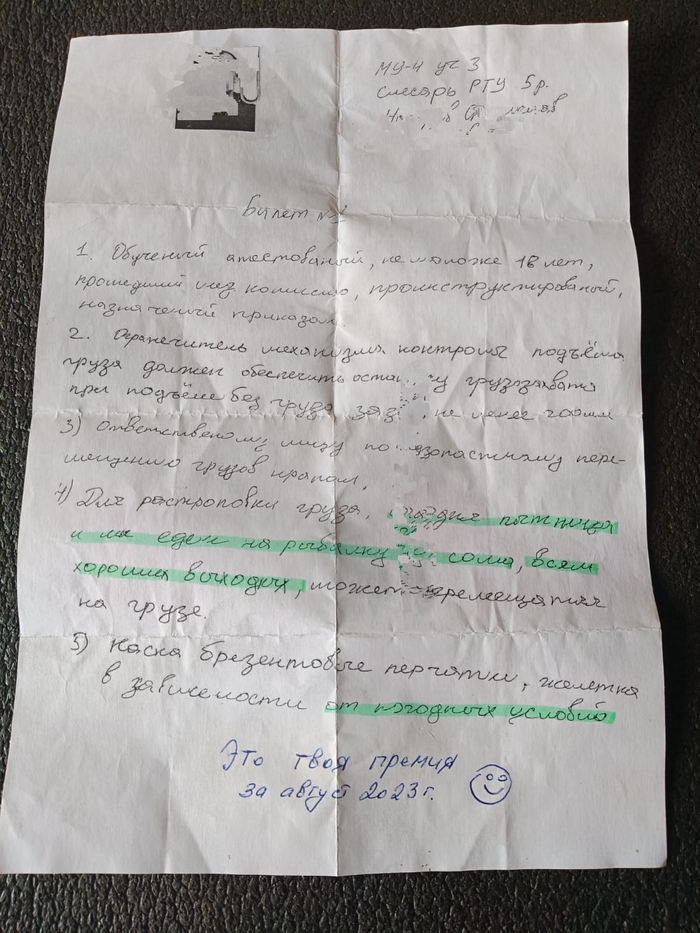 МУ-4 уч 3
Слесарь РТУ 5р.
Билет №
1. Обученый атестованый, не моложе 18 лет,
прошедший мед комиссию, проинструктированый,
назначеный приказом.
2. механизма подъёма
груза должен обеспечить грузозахвата
при подъёме без груза не менее
3) Ответственому лицу по пере-
мещению грузов
4) Для растроповки груза, пятница
и мы едем на рыбалку сома, всем
хороших выходых, может
на грузе.
5) Каска брезентовые перчатки, жилетка
в зависемости от погодных условий
Это твоя премия
за август 2023г.